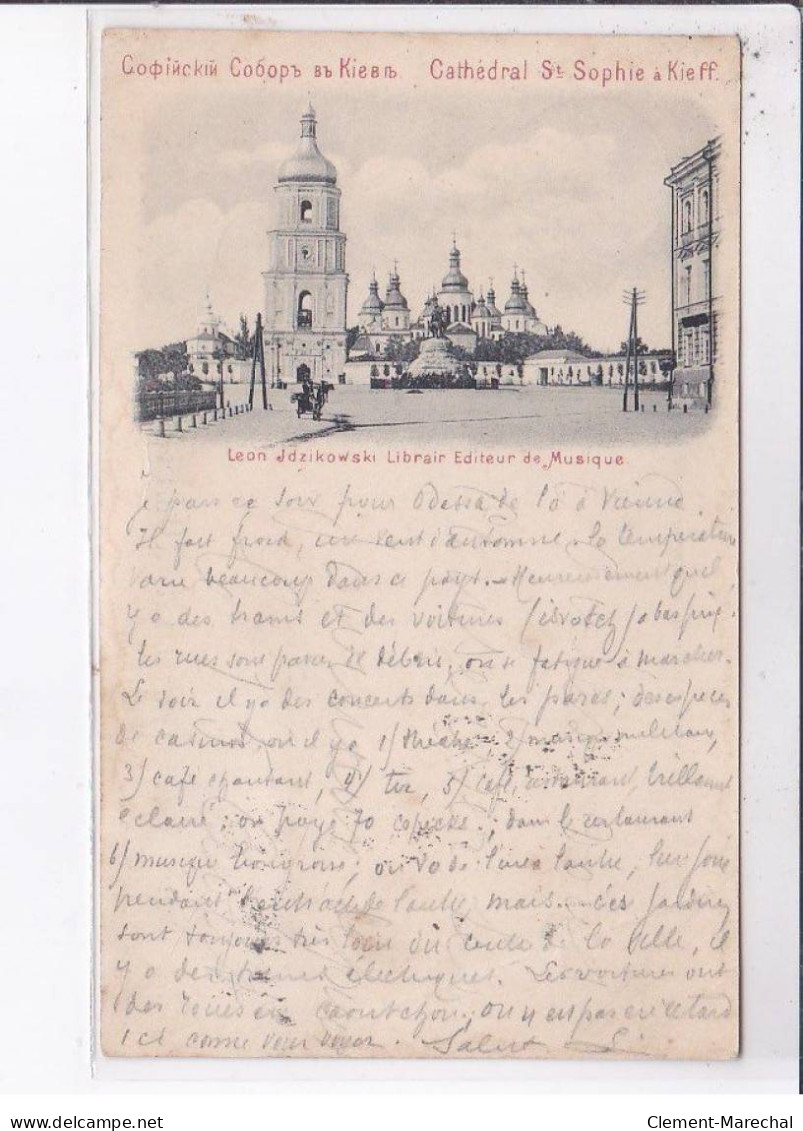 Софійскій Соборъ въ Кіевѣ. Cathédral St Sophie à Kieff.
Leon Jdzikowski Librair Editeur de Musique.
Je pars ce soir pour Odessa de là à Vienne
Il fait froid, un vent d'automne. La température
varie beaucoup dans ce pays. Heureusement qu'il
y a des trams et des voitures à bas prix.
Les rues sont de débris, on se fatigue à marcher.
Le soir il y a des concerts dans les parcs; des espèces
de casinos, où il y a 1/ théâtre 2/ musique militaire,
3/ café chantant, 4/ tir, 5/ café restaurant, brillamment
éclairé; on paye 70 copecks; dans le restaurant
6/ musique hongroise; on va de l'un à l'autre,
pendant l'entr'acte de l'autre, mais ces jardins
sont toujours très loin du centre de la ville, il
y a des trams électriques. Les voitures ont
des roues en caoutchou, on n'est pas en retard
ici comme vous voyez. Salut
Clement-Marechal